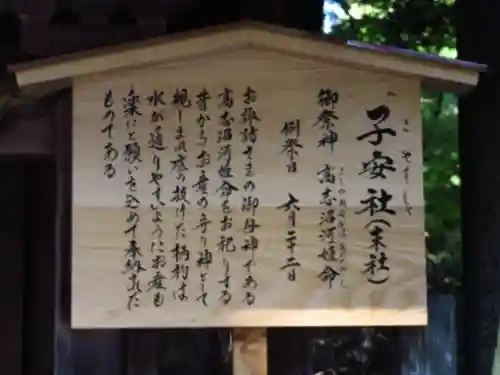 子安社（末社）
こやすしゃ
御祭神　高志沼河姫命
こしのぬなかわひめのみこと
例祭日　六月二十二日
お諏訪さまの御母神である
高志沼河姫命をお祀りする
昔からお産の守り神として
親しまれ底の抜けた柄杓は
水が通りやすいようにお産も
楽にと願いを込めて奉納された
ものである